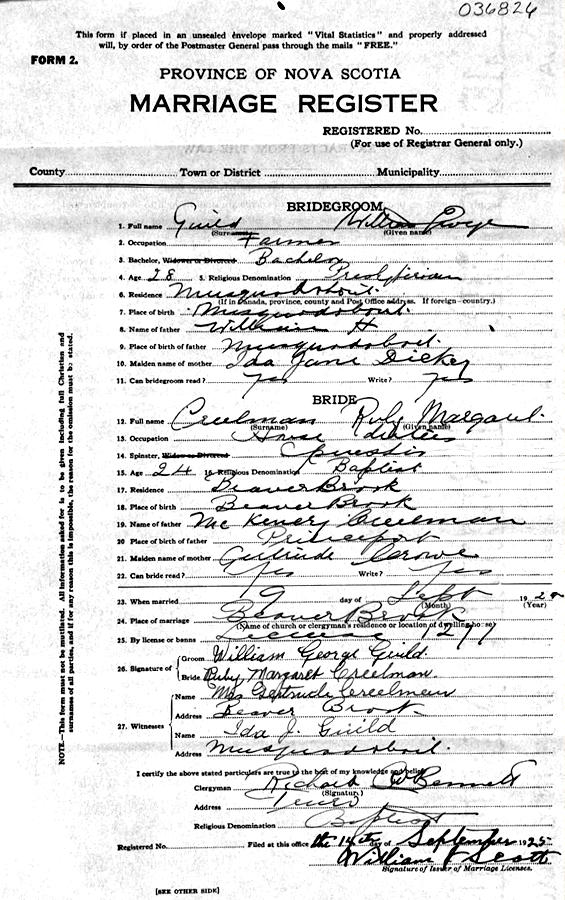 036826
This form if placed in an unsealed envelope marked "Vital Statistics" and properly addressed
will, by order of the Postmaster General pass through the mails "FREE."
FORM 2.
PROVINCE OF NOVA SCOTIA
MARRIAGE REGISTER
REGISTERED No.
(For use of Registrar General only.)
County Town or District Municipality
BRIDEGROOM
1. Full name Guild William George
(Surname) (Given name)
2. Occupation Farmer
3. Bachelor, Widower or Divorced Bachelor
4. Age 28 5. Religious Denomination Presbyterian
6. Residence Musquodoboit.
(If in Canada, province, county and Post Office address. If foreign - country.)
7. Place of birth Musquodoboit.
8. Name of father William H
9. Place of birth of father Musquodoboit.
10. Maiden name of mother Ida Jane Dickey
11. Can bridegroom read? yes Write? yes
BRIDE
12. Full name Creelman Ruby Margaret.
(Surname) (Given name)
13. Occupation House duties
14. Spinster, Widow or Divorced Spinster
15. Age 24 16. Religious Denomination Baptist
17. Residence Beaver Brook
18. Place of birth Beaver Brook
19. Name of father McKenzy Creelman
20. Place of birth of father Princeport
21. Maiden name of mother Gertrude Crowe
22. Can bride read? Yes Write? Yes
23. When married day of Sept 192
(Month) (Year)
24. Place of marriage Beaver Brook
(Name of church or clergyman's residence or location of dwelling house)
25. By license or banns License
26. Signature of Groom William George Guild.
Bride Ruby Margaret Creelman.
27. Witnesses Name Mrs Gertrude Creelman
Address Beaver Brook
Name Ida J. Guild
Address Musquodoboit.
I certify the above stated particulars are true to the best of my knowledge and belief.
Clergyman Richard Bennett
(Signature)
Address Truro
Religious Denomination Baptist
Registered No. Filed at this office the 14th day of September 1925
William Scott
Signature of Issuer of Marriage Licenses.
[SEE OTHER SIDE]
NOTE.—This form must not be mutilated. All information asked for is to be given including full Christian and
surnames of all parties, and if for any reason this is impossible, the reason for the omission must be stated.